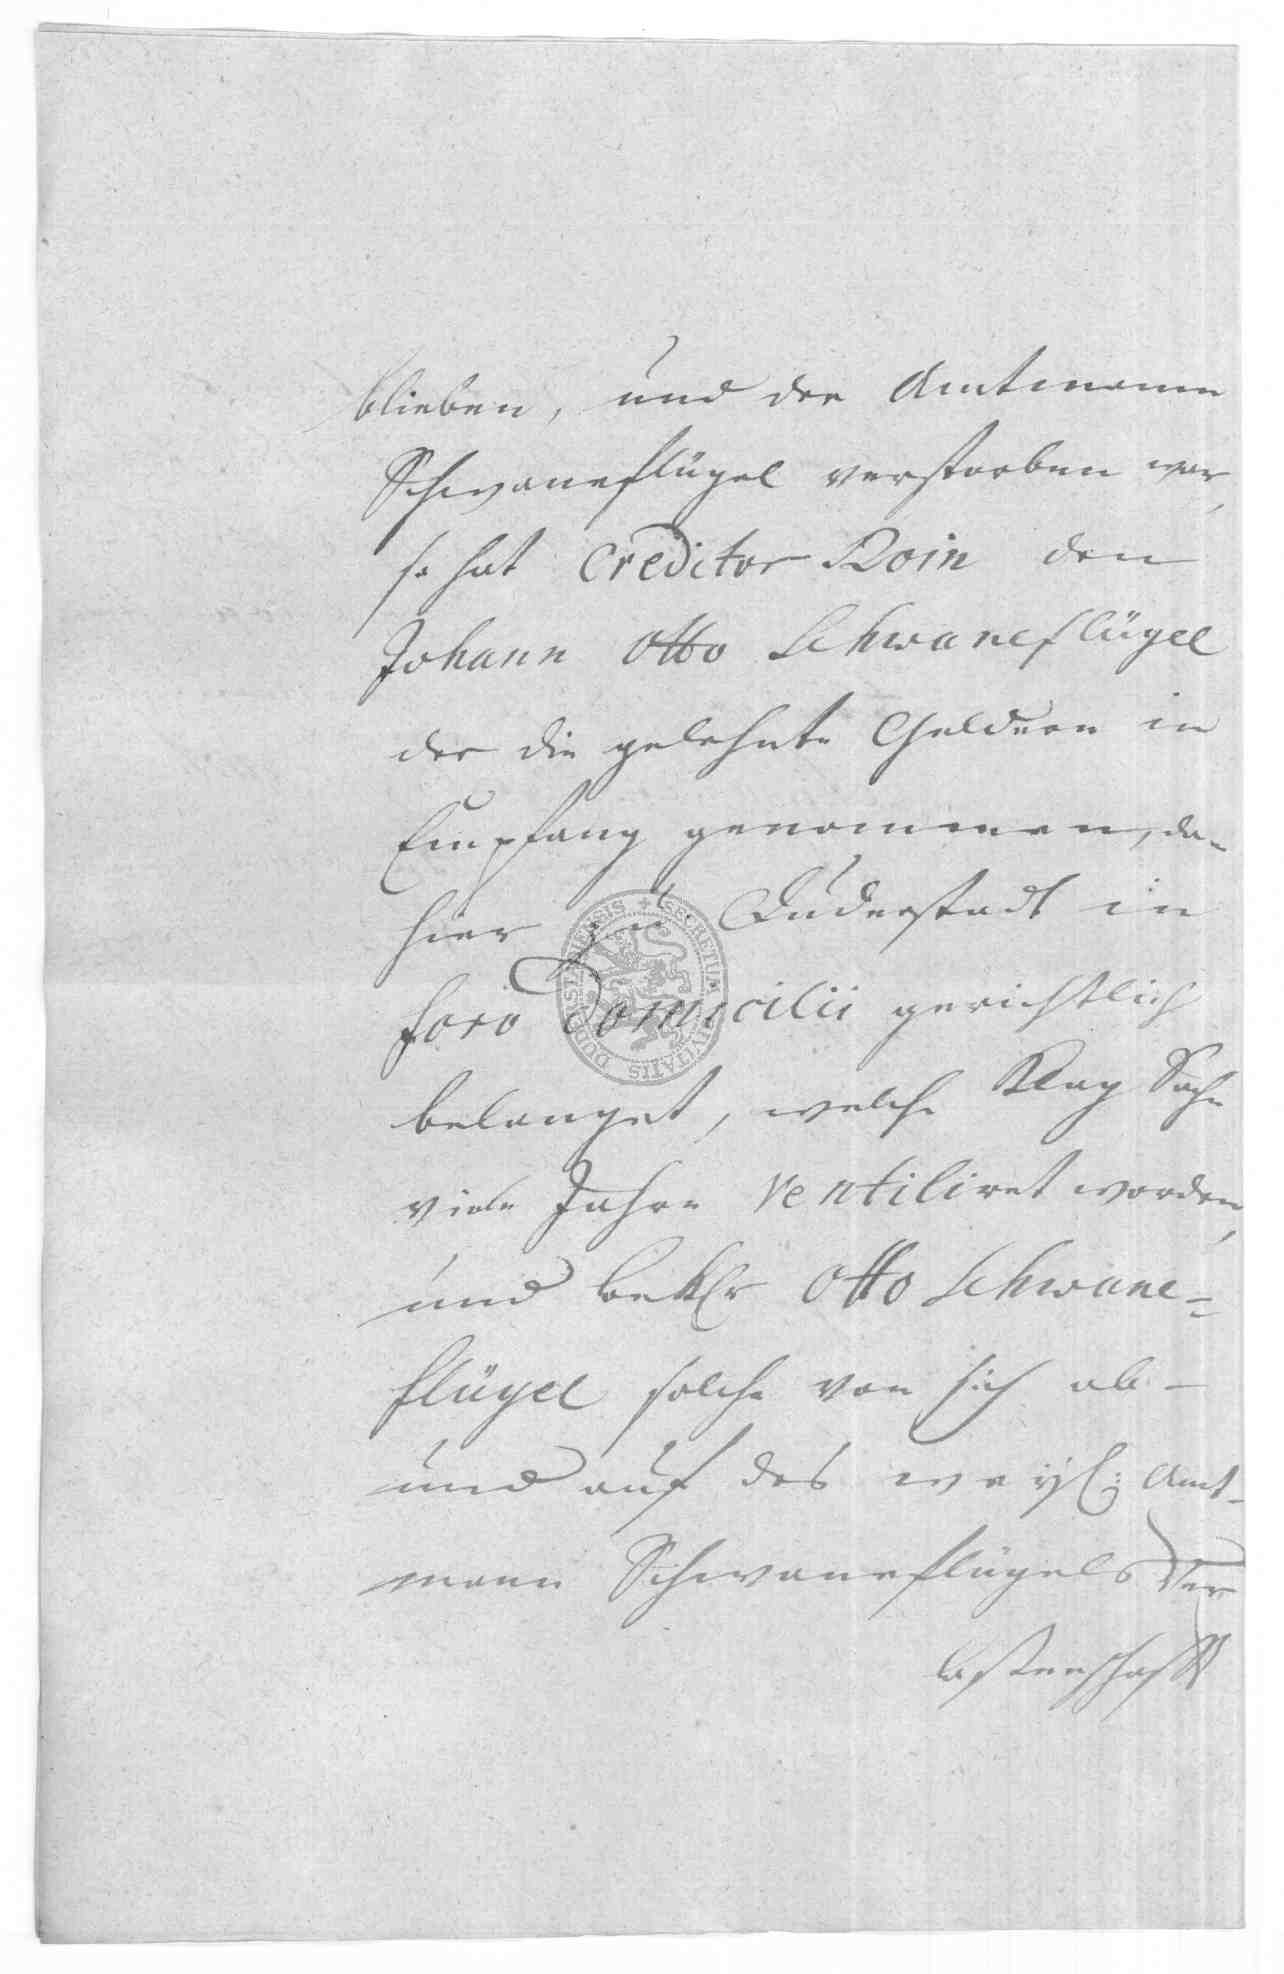 blieben, und der Amtmann
Schwaneflügel verstorben war,
so hat Creditor Roin den
Johann Otto Schwaneflügel
der die gelehnte Geldern in
Empfang genommen, da-
hier zu Duderstadt in
foro Domicilii gerichtlich
belanget, welche Klag Sache
viele Jahre ventiliret worden,
und Bekl͞r Otto Schwane=
flügel solche von sich ab-
und auf des weyl: Amt-
mann Schwaneflügels Ver
lassenschafft
SECRETUM CIVITATIS DUDERSTADENSIS